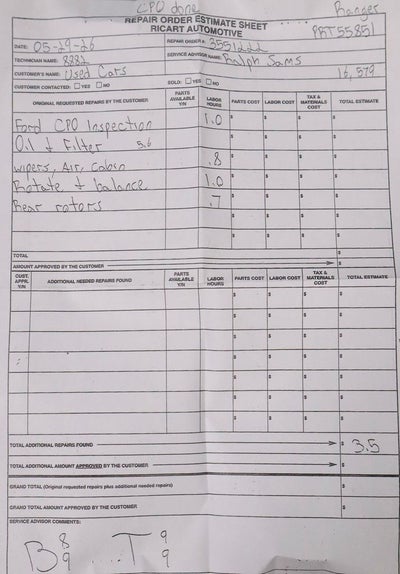 CPO done
Ranger
REPAIR ORDER ESTIMATE SHEET
RICART AUTOMOTIVE
PRT55851
DATE: 05-29-26
REPAIR ORDER #: 3551222
TECHNICIAN NAME: 8882
SERVICE ADVISOR NAME: Ralph Sams
CUSTOMER'S NAME: Used Cars
16,579
CUSTOMER CONTACTED: YES NO
SOLD: YES NO
ORIGINAL REQUESTED REPAIRS BY THE CUSTOMER PARTS AVAILABLE Y/N LABOR HOURS PARTS COST LABOR COST TAX & MATERIALS COST TOTAL ESTIMATE
Ford CPO Inspection 1.0 $ $ $ $
Oil & Filter 5.6 $ $ $ $
wipers, Air, Cabin .8 $ $ $ $
Rotate & balance 1.0 $ $ $ $
Rear rotors .7 $ $ $ $
$ $ $ $
$ $ $ $
TOTAL $
AMOUNT APPROVED BY THE CUSTOMER $
CUST. APPR. Y/N ADDITIONAL NEEDED REPAIRS FOUND PARTS AVAILABLE Y/N LABOR HOURS PARTS COST LABOR COST TAX & MATERIALS COST TOTAL ESTIMATE
$ $ $ $
$ $ $ $
$ $ $ $
$ $ $ $
$ $ $ $
$ $ $ $
$ $ $ $
TOTAL ADDITIONAL REPAIRS FOUND $ 3.5
TOTAL ADDITIONAL AMOUNT APPROVED BY THE CUSTOMER $
GRAND TOTAL (Original requested repairs plus additional needed repairs) $
GRAND TOTAL AMOUNT APPROVED BY THE CUSTOMER $
SERVICE ADVISOR COMMENTS:
B 8 9 .... T 9 9